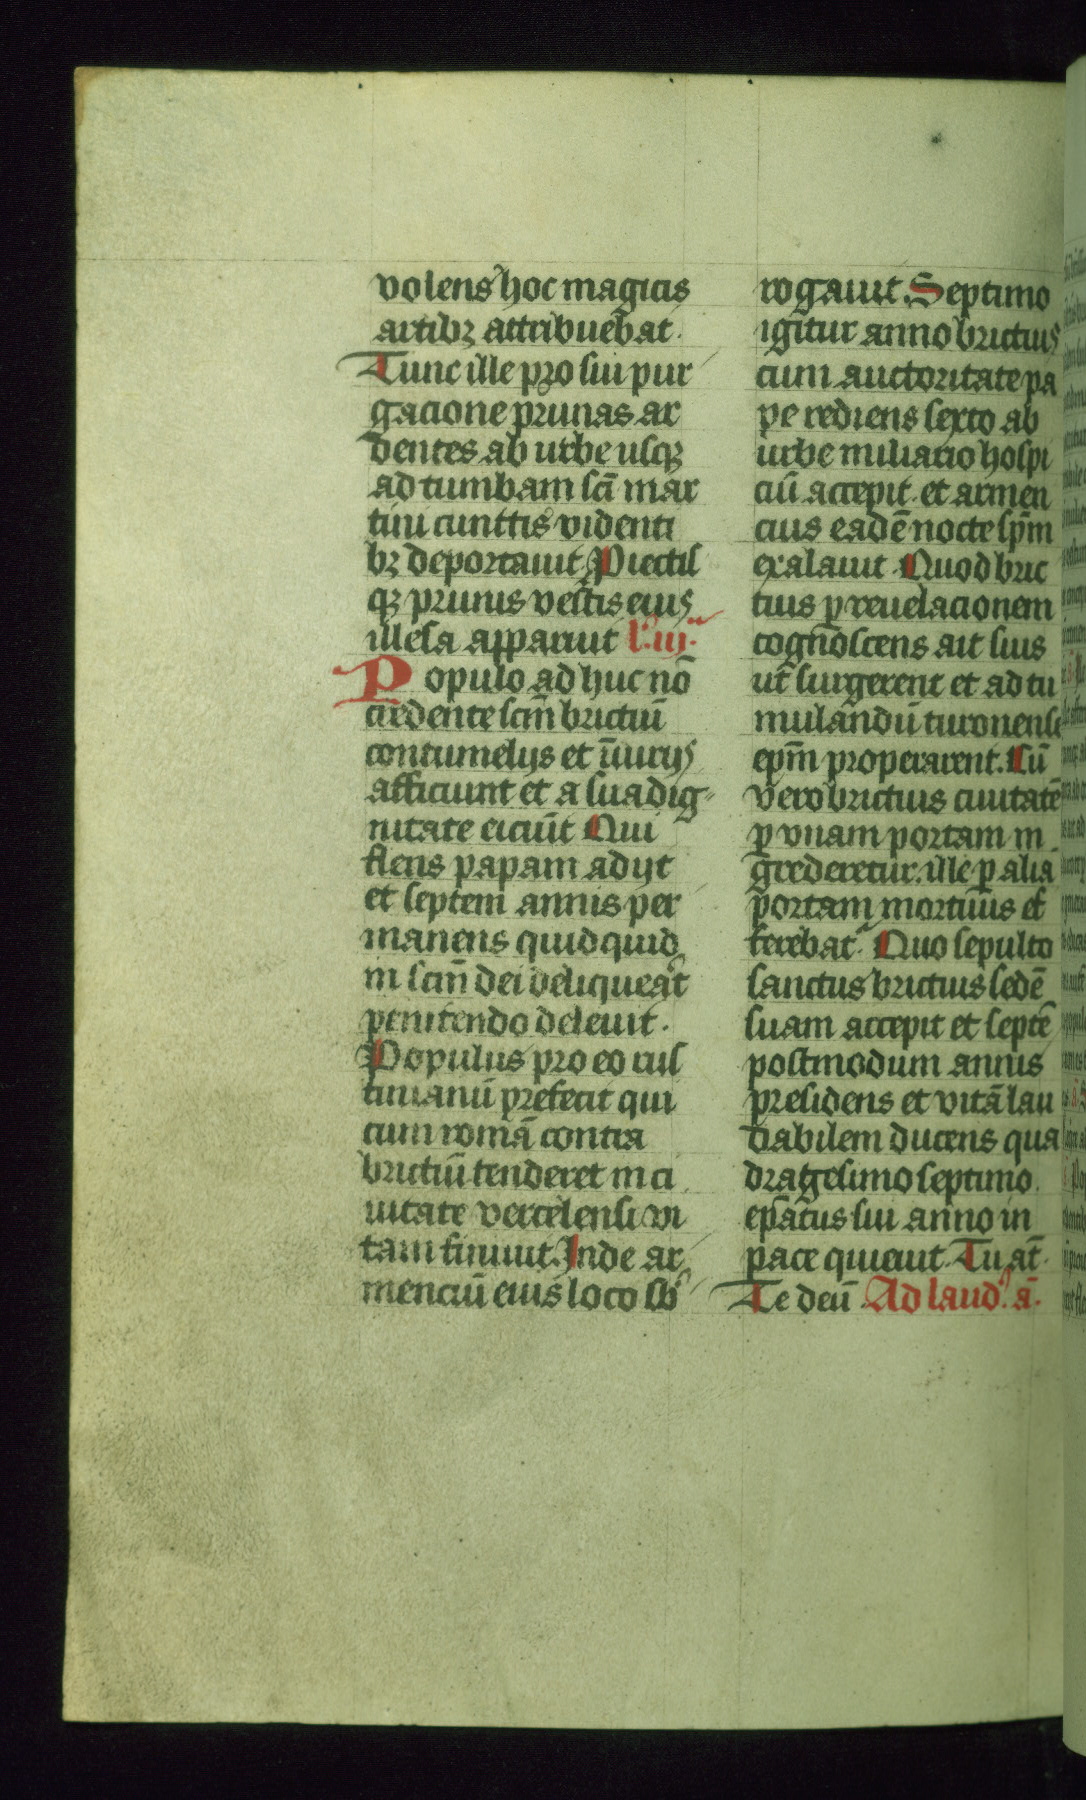 volens hoc magicis
artibꝫ attribuebat.
Tunc ille pro sui pur
gacione prunas ar
dentes ab urbe usqꝫ
ad tumbam scī mar
tini cunttis videnti
bꝫ deportauit Piectis
qꝫ prunis vestis eiuꝰ
illesa apparuit l'. iij.
Populo ad huc nō
credente scm̄ brictiū
contumelijs et īiurijs
afficiunt et a sua dig
nitate eiciūt Qui
flens papam adijt
et septem annis per
manens quidquid
in scm̄ dei deliqueat
penitendo deleuit.
Populus pro eo ius
tinianū prefecit qui
cum romā contra
brictiū tenderet in ci
uitate vercelensi vi
tam finiuit. Inde ar
menciū eius loco sb'
rogauit. Septimo
igitur anno brictiuꝰ
cum auctoritate pa
pe rediens sexto ab
urbe miliario hospi
ciū accepit. et armen
cius eadē nocte spm̄
exalauit. Quod bric
tius ꝑ reuelacionem
cognoscens ait suis
ut surgerent et ad tu
mulandū turonense
epm̄ properarent. Cū
vero brictius ciuitatē
ꝑ vnam portam in
grederetur. ille ꝑ alia
portam mortuus ef
ferebat. Quo sepulto
sanctus brictius sedē
suam accepit et septē
postmodum annis
presidens et vitā lau
dabilem ducens qua
dragesimo septimo
epsat̄us sui anno in
pace quieuit. Tu at̄
Te deū. Ad laud'. ā.